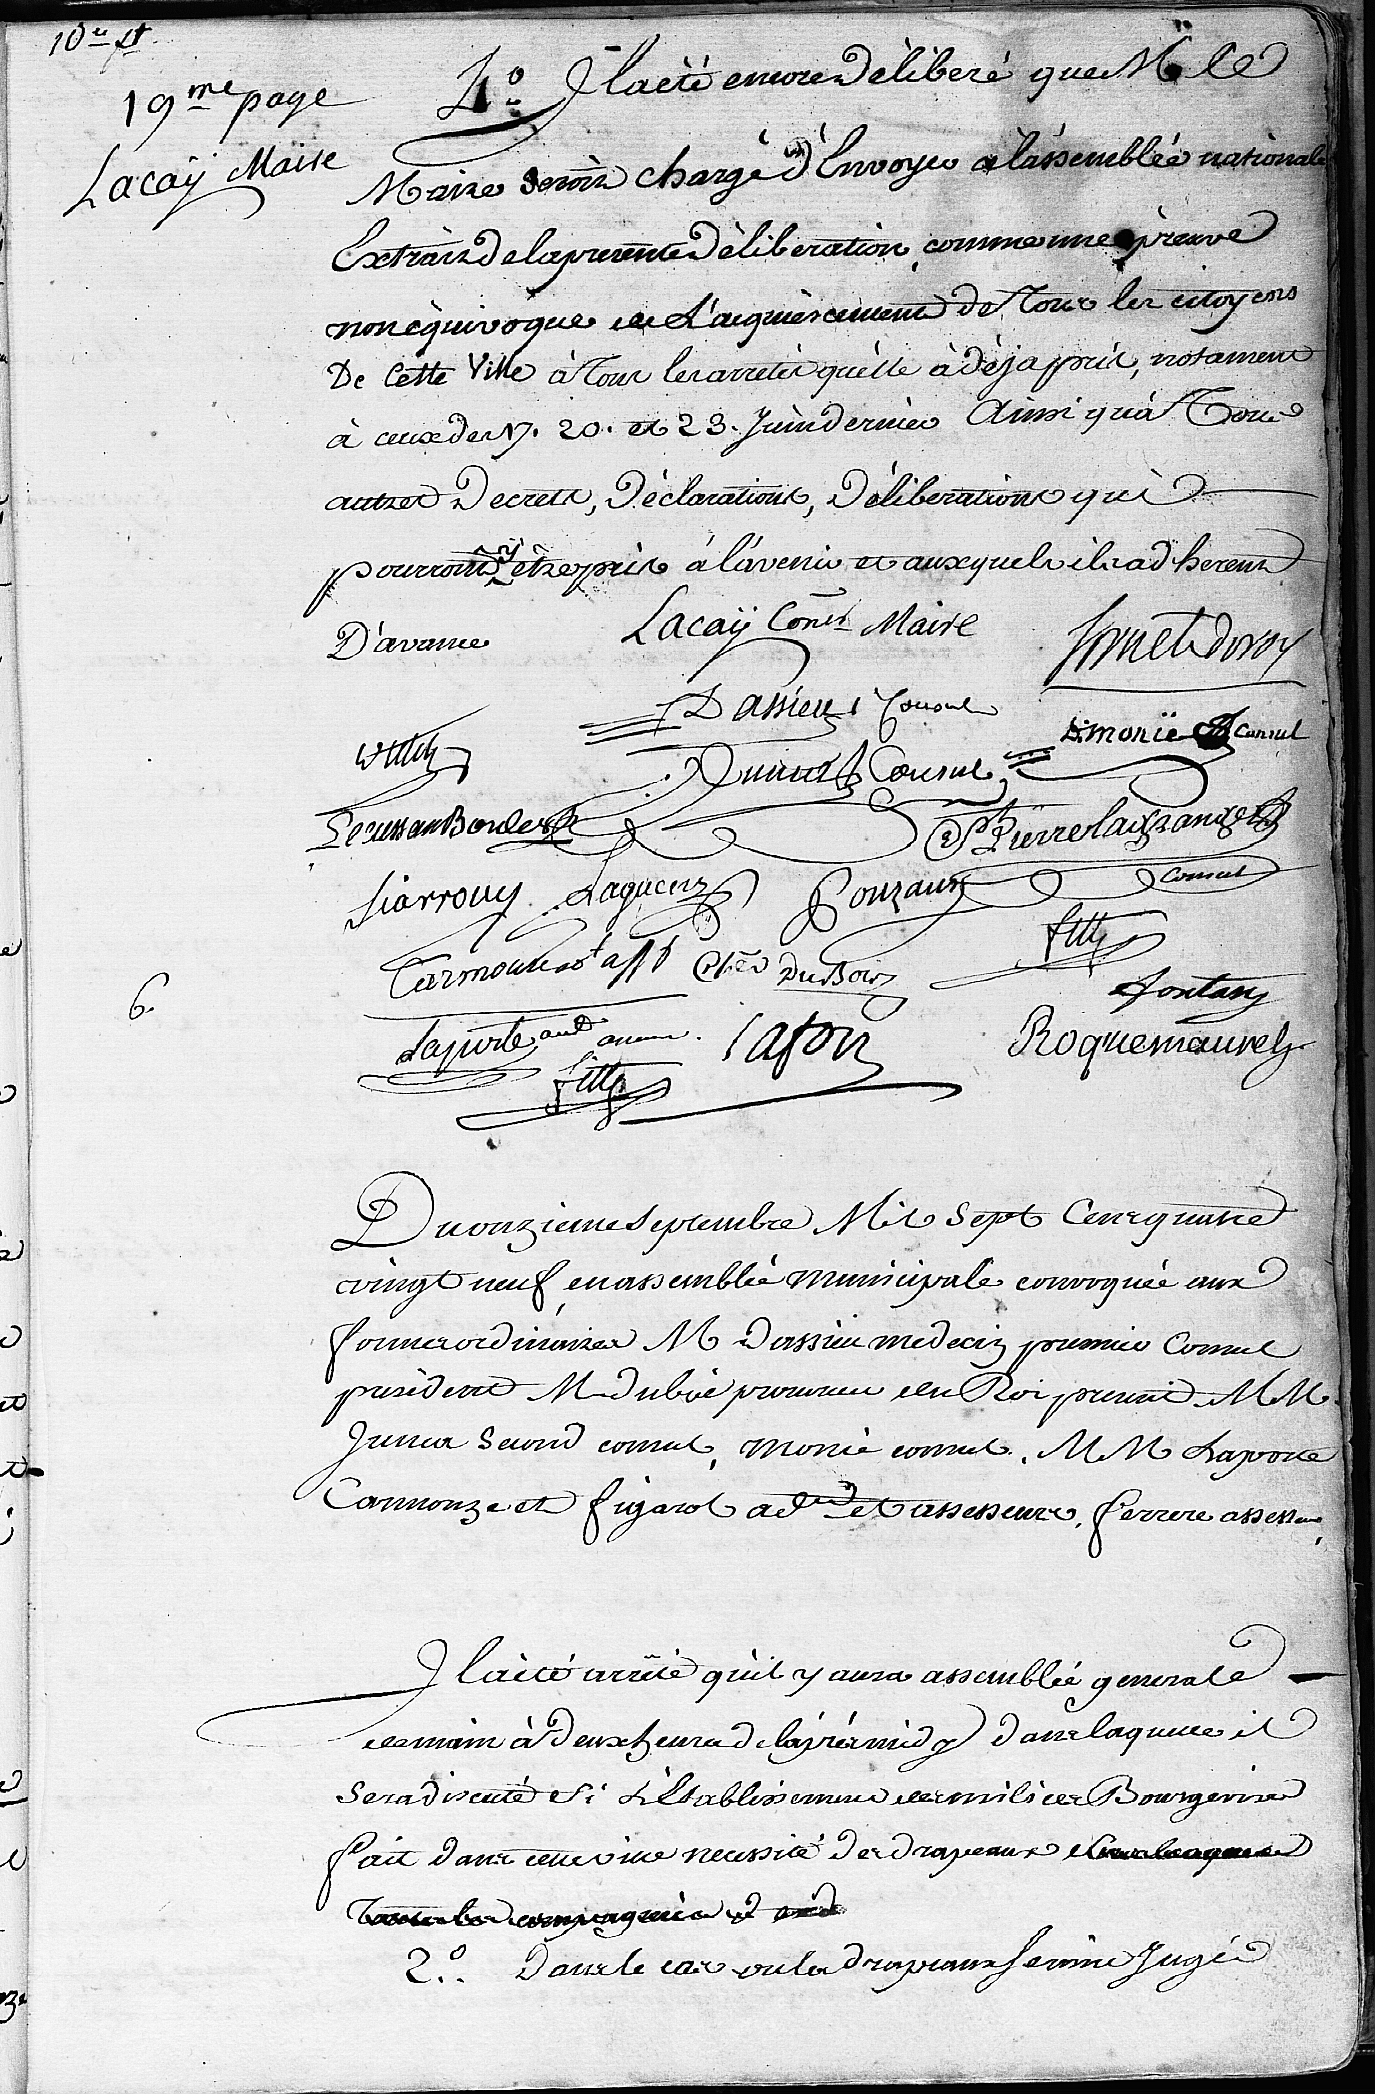 19me page
Lacaÿ Maire
4o Il a été encore Délibéré que M. le
Maire seroit chargé d'Envoyer a l'assemblée nationale
Extrait de la presente Déliberation, comme une preuve
non équivoque de L'acquiescement de Tous les citoyens
De Cette Ville à Tous les arretés quélle à déja pris, notament
à ceux des 17. 20. et 23. Juin dernier Ainsi qu'à Tous
autres Decrets, Déclarations, Déliberations qui
pourront y être pris à l'avenir et auxquels ils adherent
D'avance
Lacaÿ Maire
Dassieu 1er Consul
Junca Consul
monïe Consul
St Pierre Consul
Siarrouy Lagucens Pouzaux
Dubois
fontan
Laporte lafon Roquemaurel
6.
Du onzieme septembre Mil Sept Cent quatre
vingt neuf en assemblée municipale convoquée aux
formes ordinaires M dassieu medecin premier Consul
président M dubié procureur du Roi presents MM
Junca Second consul, monié consul. MM Laporte
Carmouze et figarol adts et assesseurs, ferrere assesseur,
Il a été arrêté qu'il y aura assemblée generale
demain à Deux heures de l'après midy dans laquelle il
Sera discuté Si L'Etablissement des milices Bourgeoises
fait dans cette ville necessite des drapeaux
Toutes les compagnies
2o. Dans le cas ou les drapeaux seroint Jugés